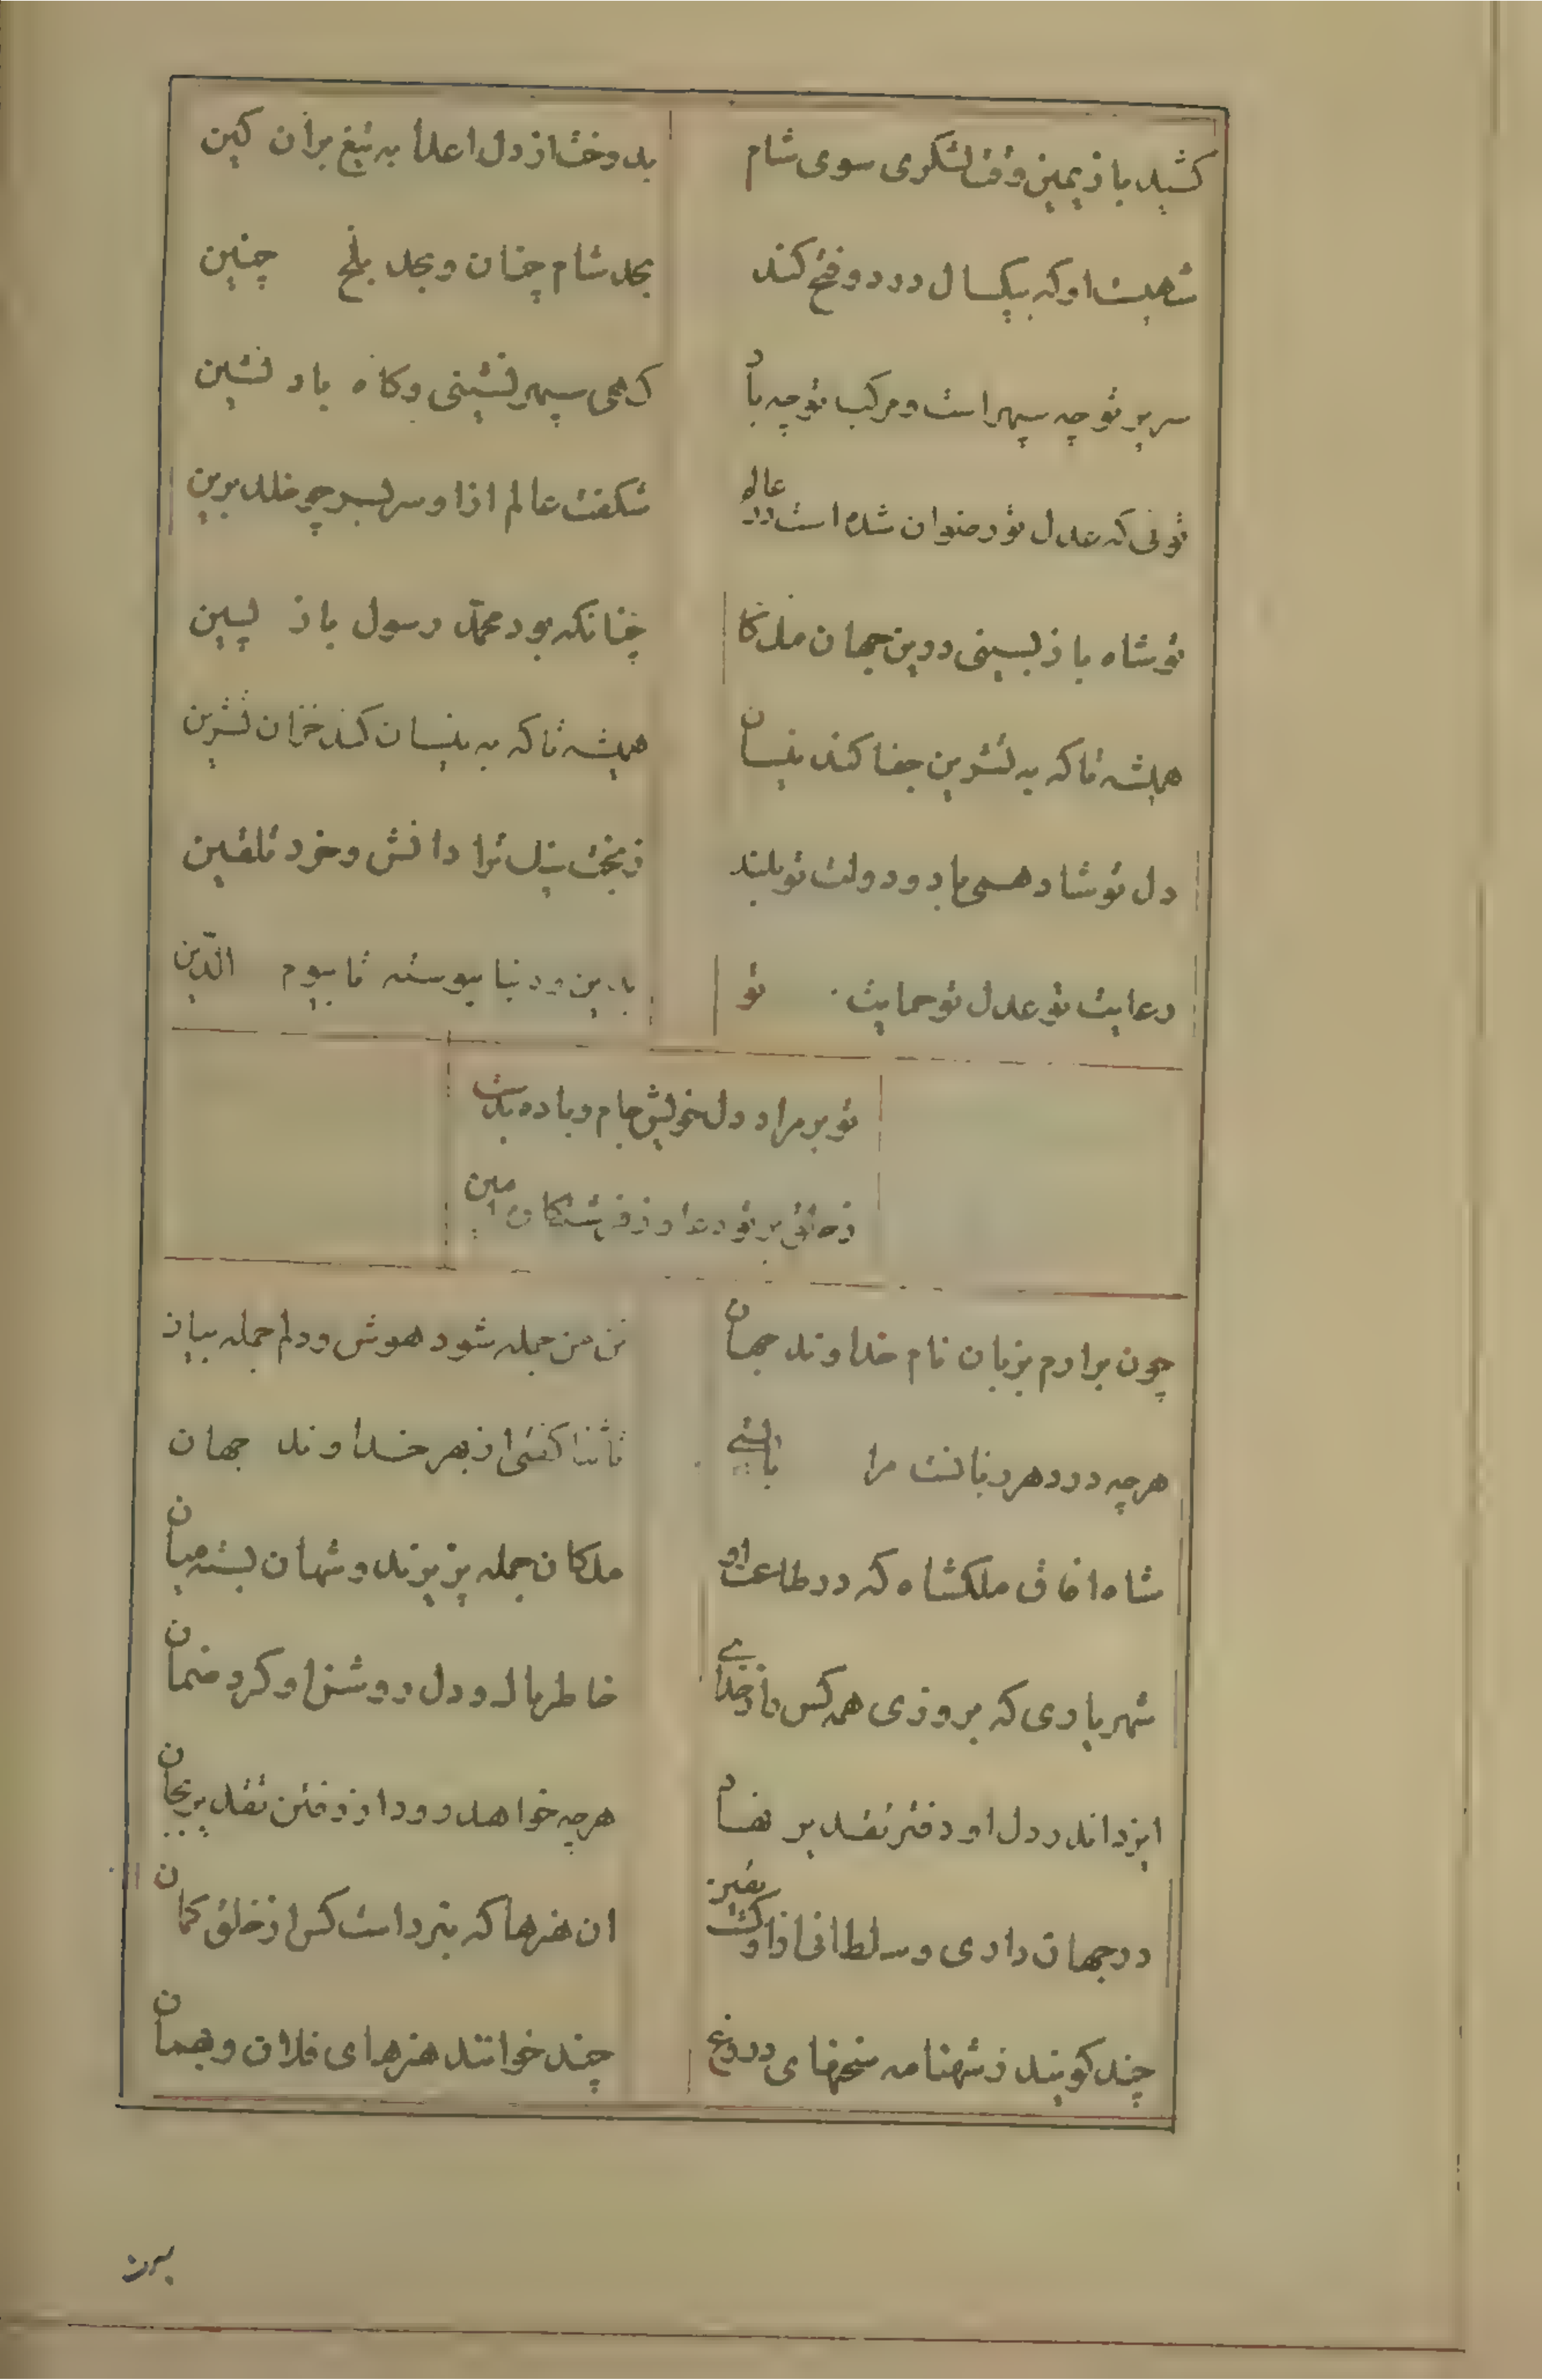 کشید باز یمین وقت لشکری سوی شام
بدوخت از دل اعدا به تیغ بران کین
شهیست او که بیکسال در دو فتح کند
بحد شام چنان و بحد بلخ چنین
سریر تو چه سپهر است و مرکب تو چه باد
که هی سپهر نشینی و کاه باد نشین
توئی که عدل تو رضوان شده است در عالم
شکفت عالم ازاو سربسر چو خلد برین
تو شاه باز بسینی درین جهان ملکا
چنانکه بود محمّد رسول باز پسین
همیشه تا که به تشرین جفا کند نیسان
همیشه تا که به نیسان کند خزان تشرین
دل تو شاد همی باد و دولت تو بلند
ز بخت نیک ترا دانش و خرد تلقین
رعایت تو عدل تو حمایت تو
بدین و دنیا پیوسته تا بیوم الدّین
تو بر مراد دل خویش جام و باده بدست
ز ما بر تو دعا و ز فرشتکان آمین
چون برارم بزبان نام خداوند جهان
تن من جمله شود هوش و دلم جمله بیان
هرچه در دهر زبانست مرا بایستی
تا ثنا کفتمی از بهر خداوند جهان
شاه افاق ملکشاه که در طاعت او
ملکان جمله پزیرند و شهان بسته میان
شهریاری که بروزی همه کس را ز خدای
خاطر پاک و دل روشن او کرد ضمان
ایزد اندر دل او دفتر تقدیر نهاد
هرچه خواهد رود از دفتر تقدیر بجان
در جهان داری و سلطانی ازاو کشت یقین
ان هنرها که نبرداست کس از خلق کمان
چند کویند ز شهنامه سخنهای دروغ
چند خوانند هنرهای فلان و بهمان